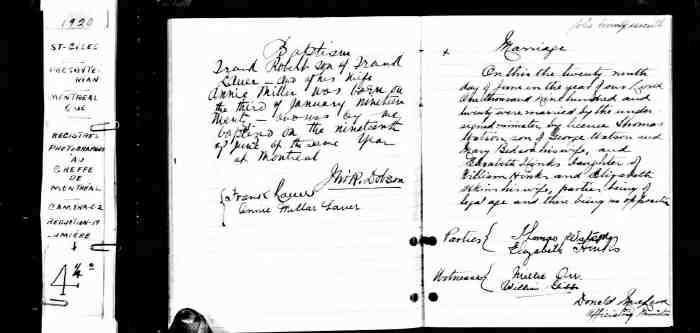 1920
ST-GILES
PRESBYTE-
RIAN
MONTREAL
QUE
REGISTRES
PHOTOGRAPHIES
AU
GREFFE
DE
MONTREAL
CAMERA-C-2
REDUCTION-19
LUMIÈRE
4
Baptism
Frank Robert son of Frank
and of his wife
Annie Miller was born on
the third of January nineteen
twenty and was by me
baptized on the nineteenth
of June of the same year
at Montreal
Jno R. Dobson
Frank Lauer
Annie Millar Lauer
folio twenty seventh
Marriage
On this the twenty ninth
day of June in the year of our Lord
one thousand nine hundred and
twenty were married by the under-
signed minister, by licence Thomas
Watson son of George Watson and
Mary his wife, and
Elizabeth Hinks daughter of
William Hinks and Elizabeth
his wife, parties being of
legal age and there being no opposition
Parties
Thomas Watson
Elizabeth Hinks
Witnesses
Millie Orr
William Gibb
Donald
Officiating Minister